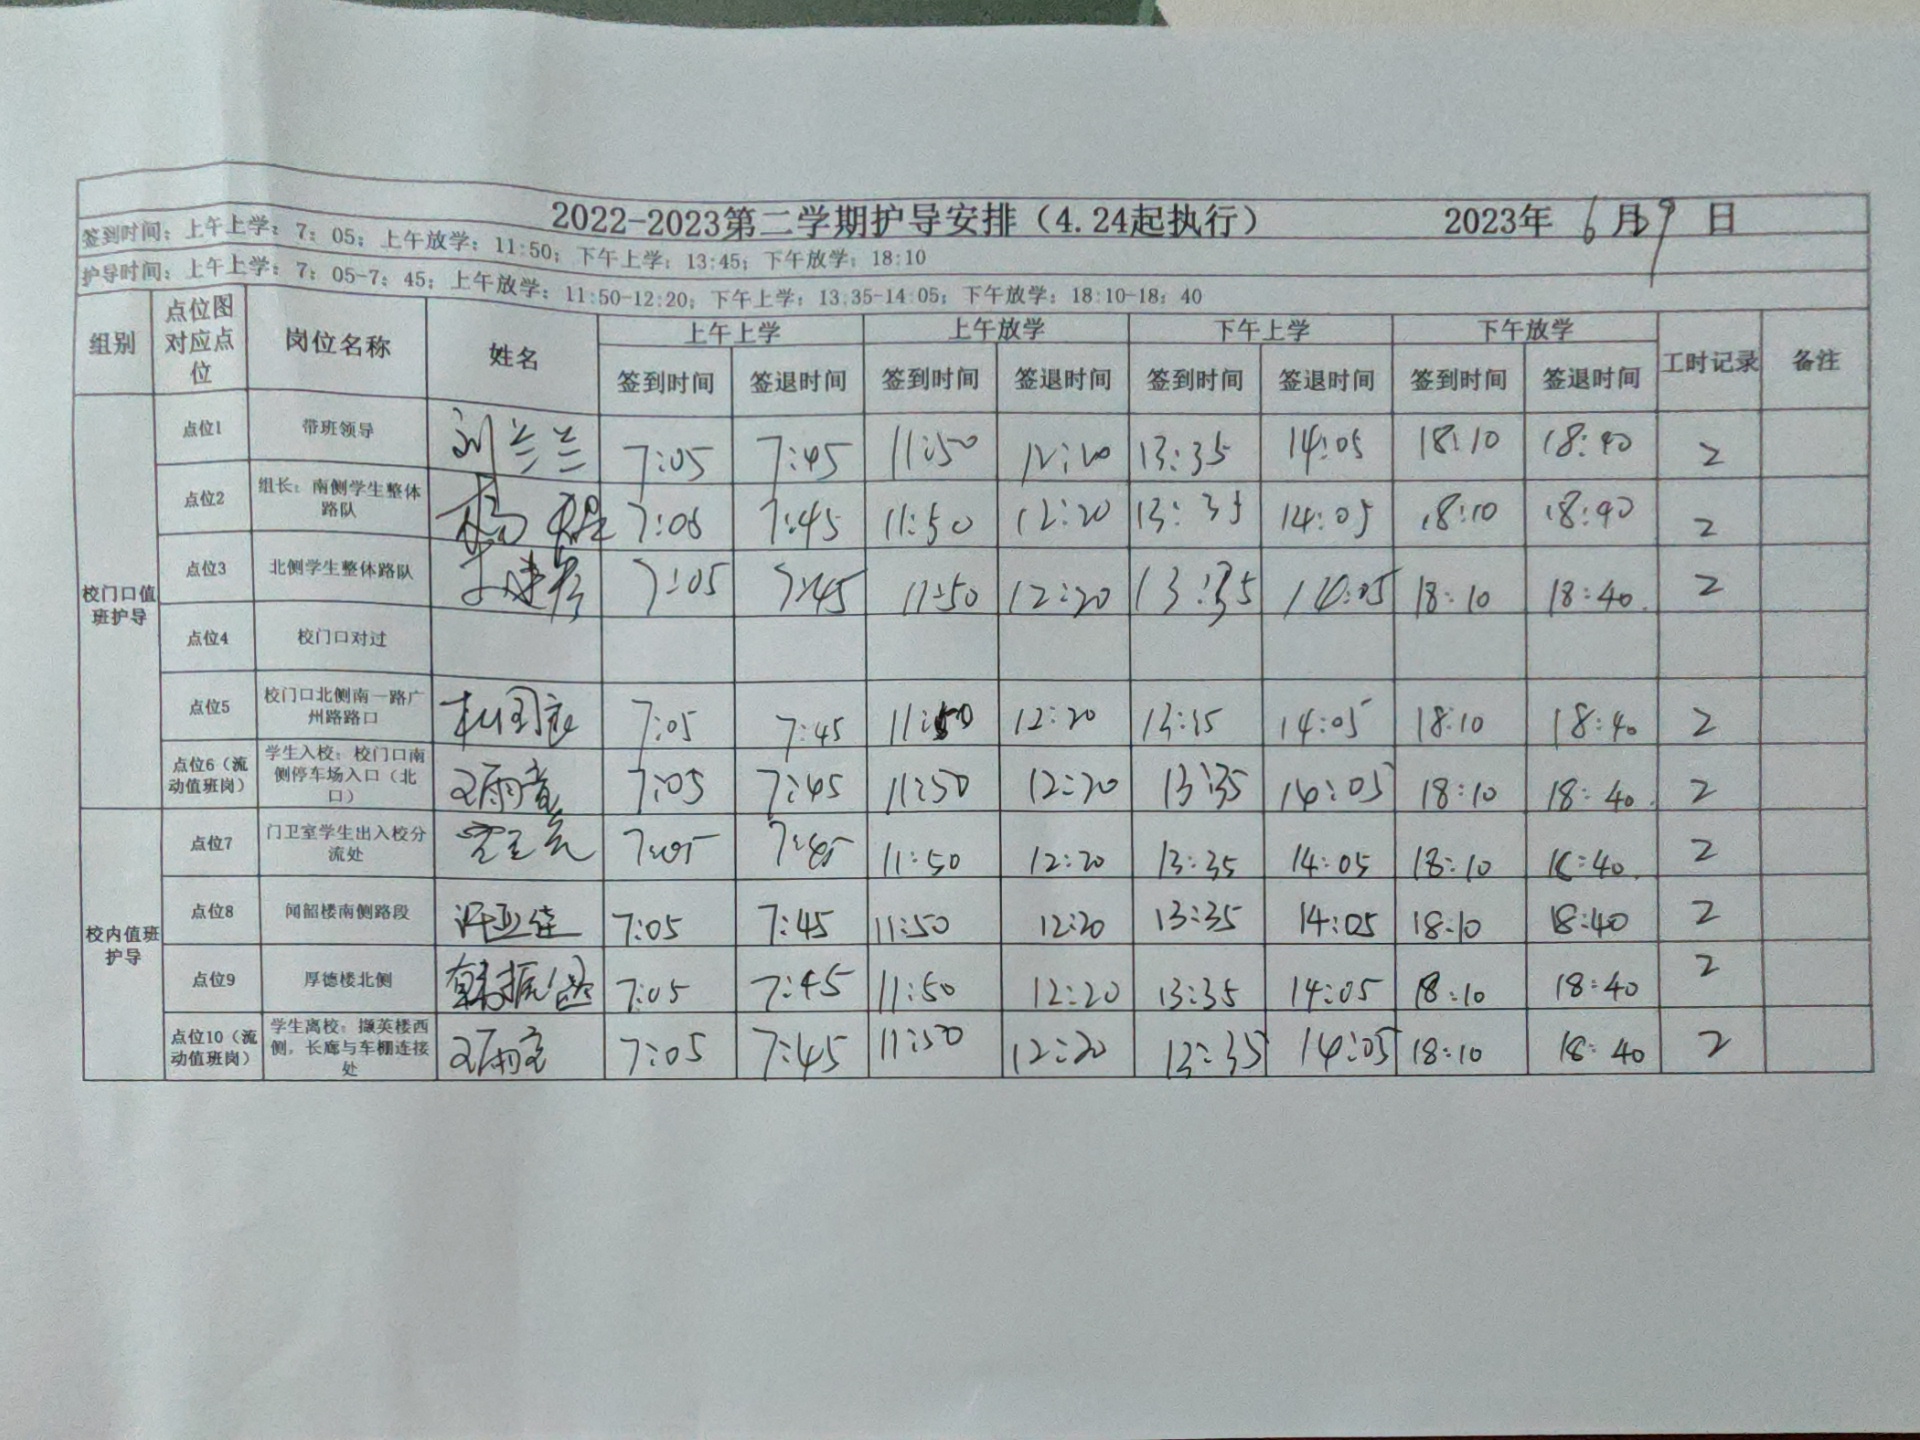 2022-2023第二学期护导安排（4.24起执行） 2023年 6 月 9 日
签到时间：上午上学：7：05；上午放学：11:50；下午上学：13:45；下午放学：18:10
护导时间：上午上学：7：05-7：45；上午放学：11:50-12:20；下午上学：13:35-14:05；下午放学：18:10-18：40
组别 点位图对应点位 岗位名称 姓名 上午上学 上午放学 下午上学 下午放学 工时记录 备注
签到时间 签退时间 签到时间 签退时间 签到时间 签退时间 签到时间 签退时间
校门口值班护导
点位1 带班领导 刘兰兰 7:05 7:45 11:50 12:20 13:35 14:05 18:10 18:40 2
点位2 组长：南侧学生整体路队 杨 7:05 7:45 11:50 12:20 13:35 14:05 18:10 18:40 2
点位3 北侧学生整体路队 7:05 7:45 11:50 12:20 13:35 14:05 18:10 18:40 2
点位4 校门口对过
点位5 校门口北侧南一路广州路路口 7:05 7:45 11:50 12:20 13:35 14:05 18:10 18:40 2
点位6（流动值班岗） 学生入校：校门口南侧停车场入口（北口） 7:05 7:45 11:50 12:20 13:35 14:05 18:10 18:40 2
校内值班护导
点位7 门卫室学生出入校分流处 7:05 7:45 11:50 12:20 13:35 14:05 18:10 18:40 2
点位8 闻韶楼南侧路段 7:05 7:45 11:50 12:20 13:35 14:05 18:10 18:40 2
点位9 厚德楼北侧 韩振 7:05 7:45 11:50 12:20 13:35 14:05 18:10 18:40 2
点位10（流动值班岗） 学生离校：撷英楼西侧，长廊与车棚连接处 7:05 7:45 11:50 12:20 13:35 14:05 18:10 18:40 2